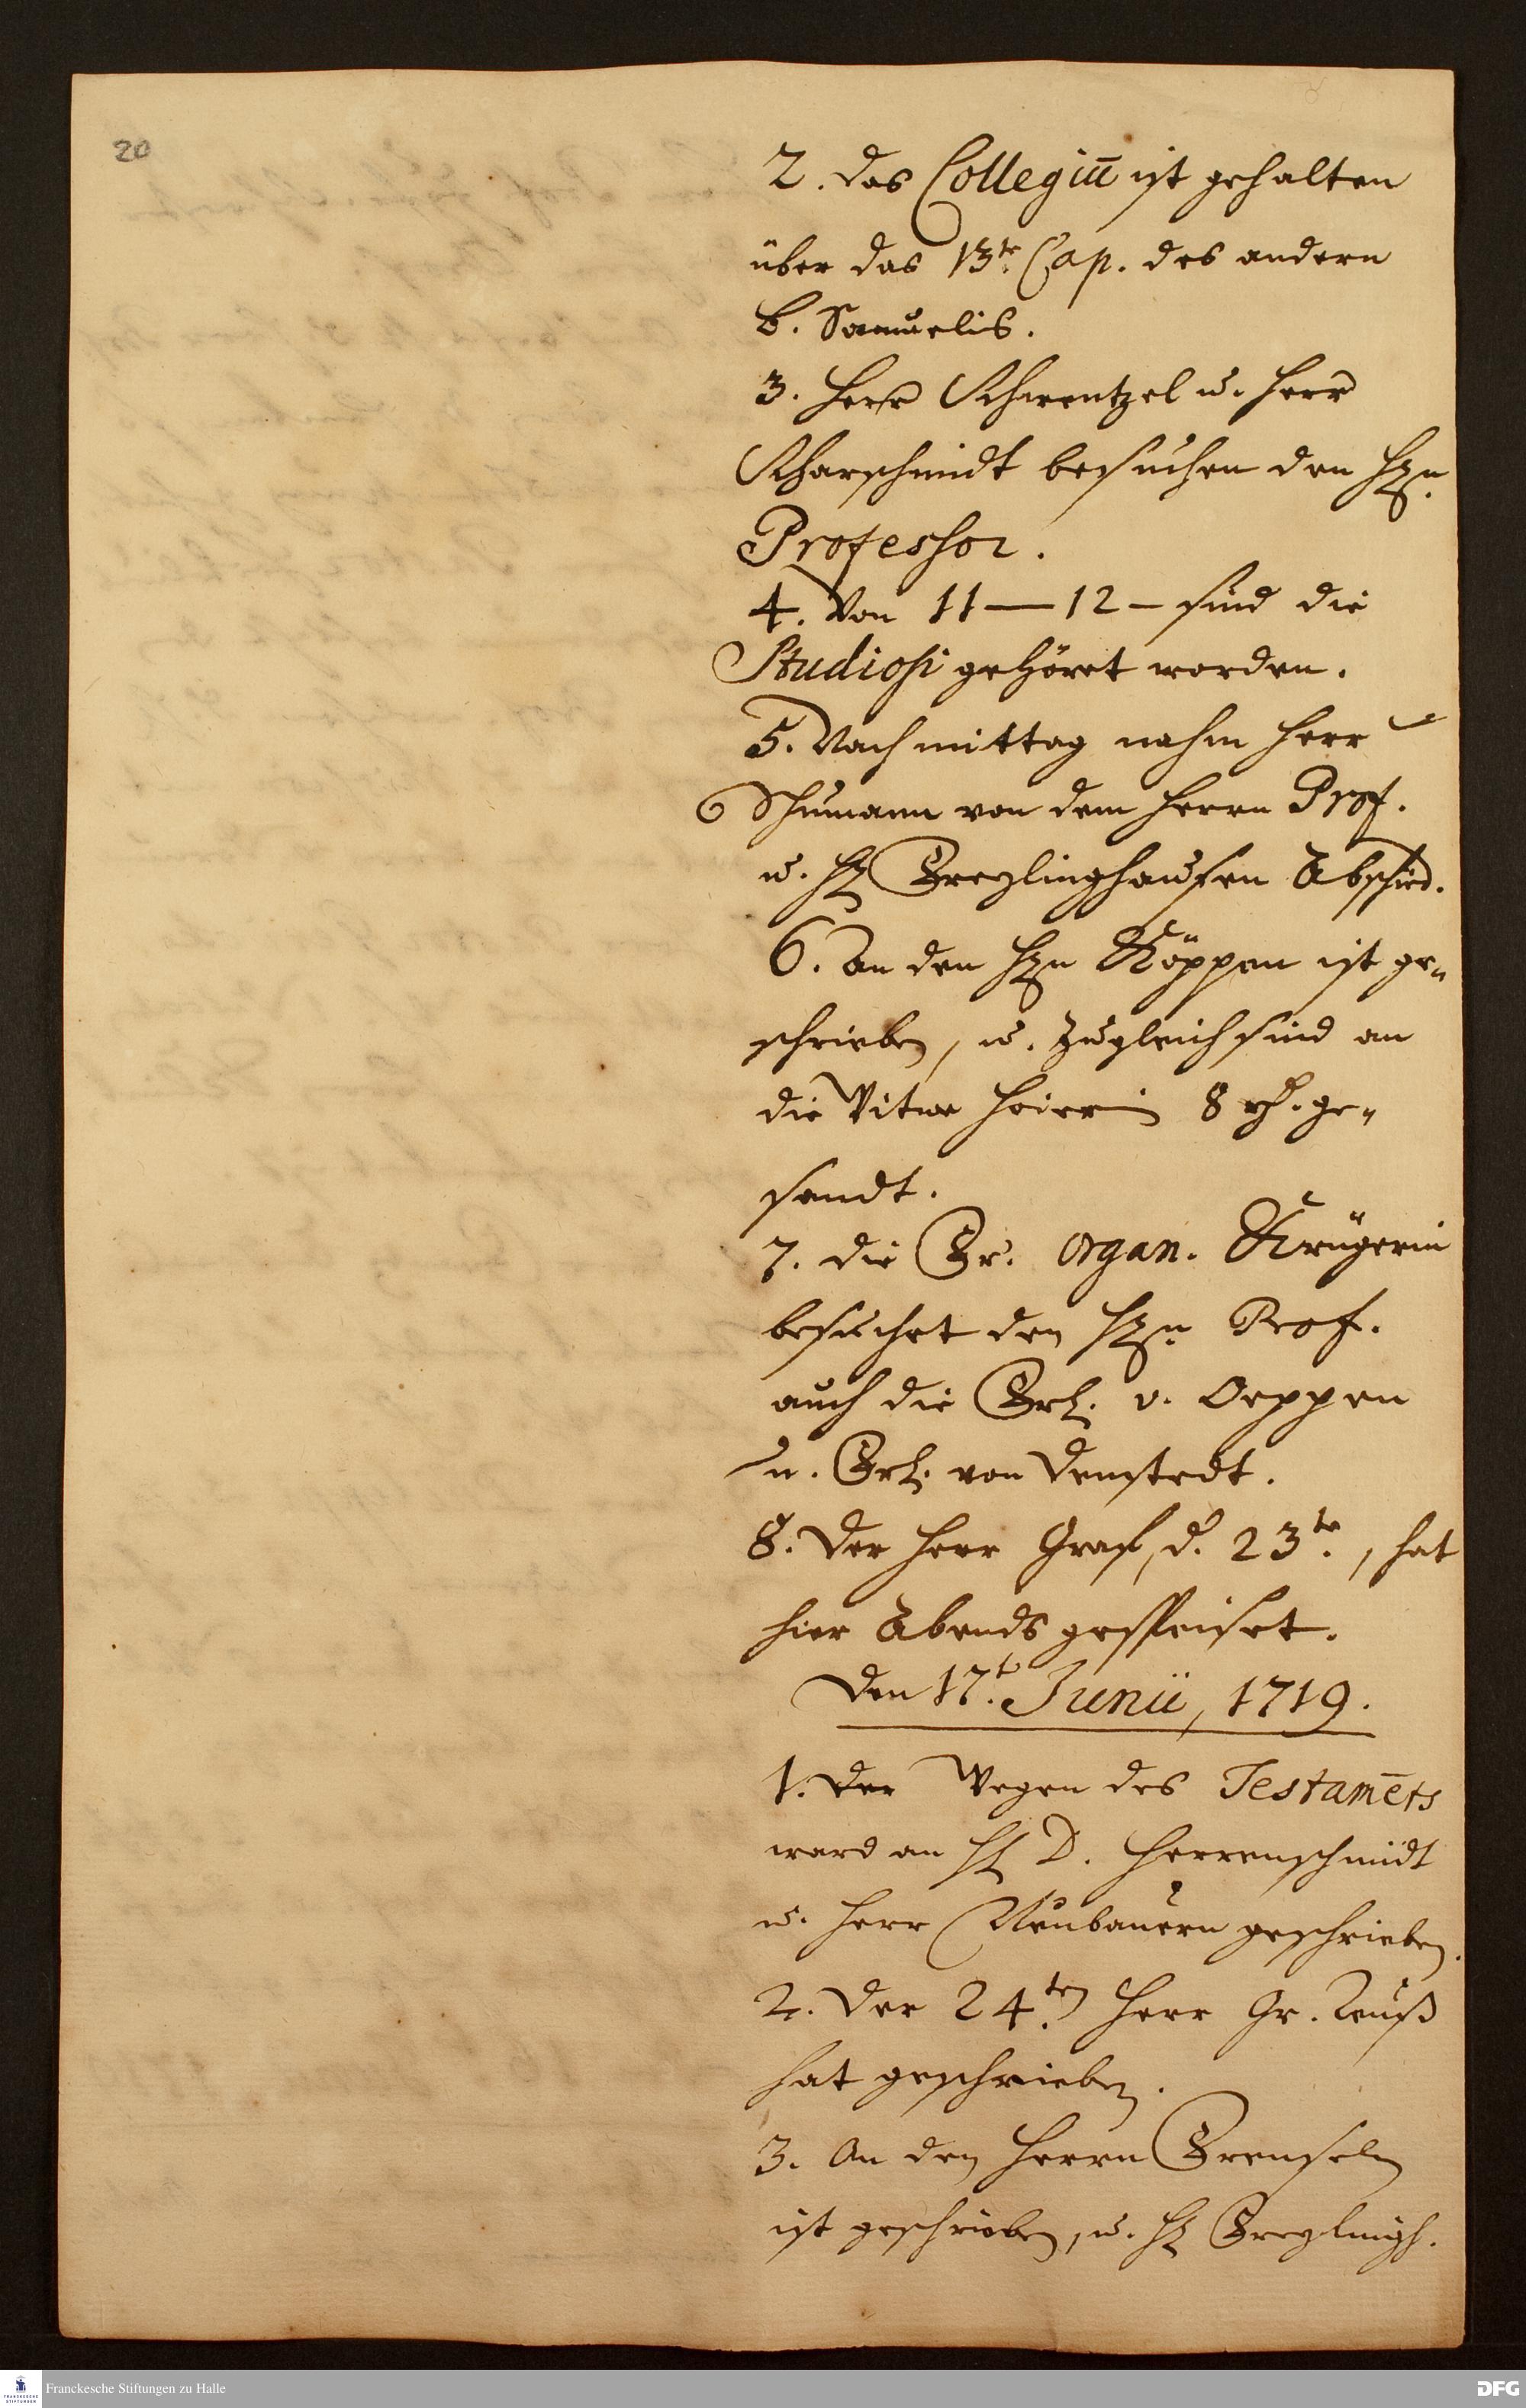 20
2. das Collegiū ist gehalten
über das 13te. Cap. des andern
b. Samuelis.
3. Herr Schwentzel u. Herr
Scharschmidt besuchen den Hrn.
Professor.
4. Von 11 — 12 – sind die
Studiosi gehöret worden.
5. Nachmittag nahm Herr
Schumann von dem Herrn Prof.
u. Hr Freylinghausen Abschied.
6. An den Hrn Köppen ist ge„
schrieben, u. zugleich sind an
die Vitwe 8 rth. ge„
sandt.
7. die Fr. Organ. Krügerin
besuchet den Hrn Prof.
auch die Frl. v. Oeppen
u. Frl. von Denstedt.
8. Der Herr Graf, d. 23te., hat
hier Abends gespeiset.
Den 17t. Junii, 1719.
1. Der Wegen des Testamēts
ward an Hr D. Herrenschmidt
u. Herr Neubauern geschrieben.
2. Der 24ten Herr Gr. Reuß
hat geschrieben.
3. An den Herrn
ist geschrieben, u. Hr Freylingh.
Franckesche Stiftungen zu Halle
FRANCKESCHE STIFTUNGEN
DFG